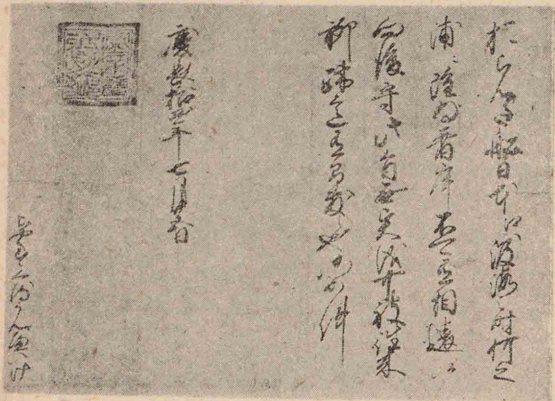 おらんだ船日本江渡海之時何之
浦ニ雖為着岸不可有相違候
向後守此旨無異儀可被往来
聊疎意有間敷候也仍如件
慶長拾四年七月廿五日